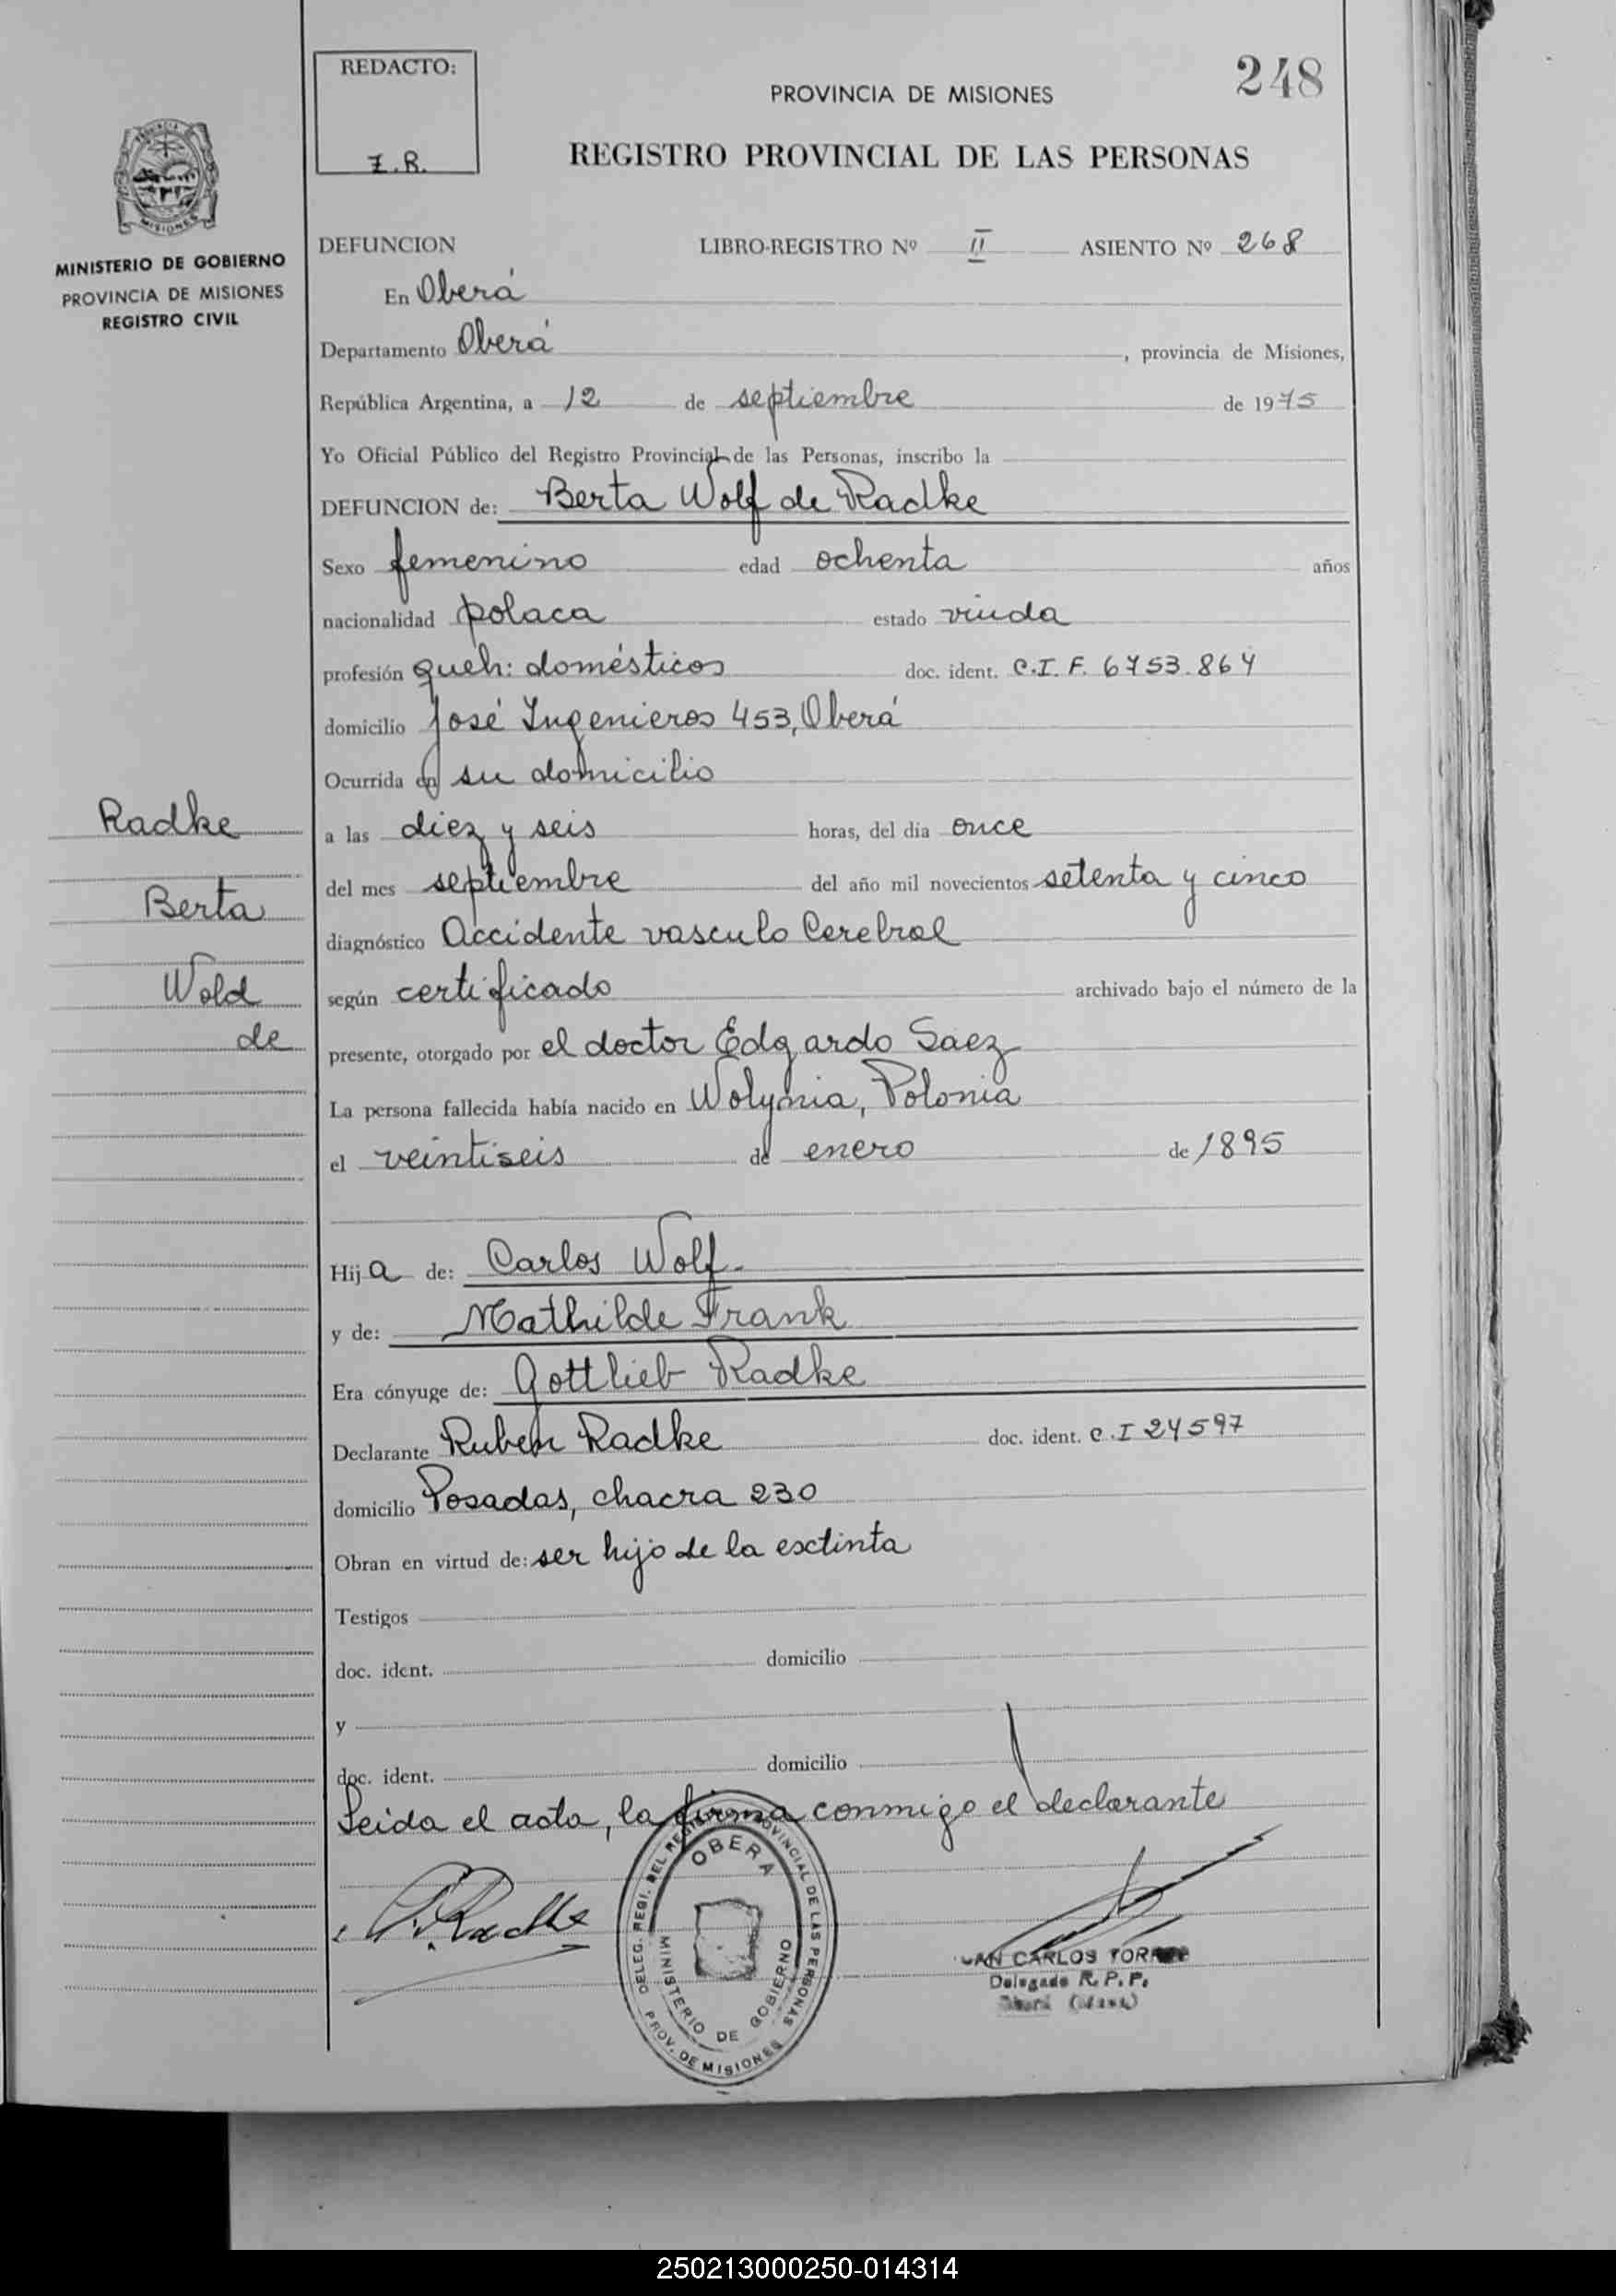 REDACTO:
Z.R.
248
PROVINCIA DE MISIONES
REGISTRO PROVINCIAL DE LAS PERSONAS
MINISTERIO DE GOBIERNO
PROVINCIA DE MISIONES
REGISTRO CIVIL
DEFUNCION LIBRO-REGISTRO Nº II ASIENTO Nº 268
En Oberá
Departamento Oberá, provincia de Misiones,
República Argentina, a 12 de septiembre de 1975
Yo Oficial Público del Registro Provincial de las Personas, inscribo la
DEFUNCION de: Berta Wolf de Radke
Sexo femenino edad ochenta años
nacionalidad polaca estado viuda
profesión queh: domésticos doc. ident. C.I.F. 6753.864
domicilio José Ingenieros 453, Oberá
Ocurrida en su domicilio
Radke
Berta
Wold
de
a las diez y seis horas, del dia once
del mes septiembre del año mil novecientos setenta y cinco
diagnóstico Accidente vasculo Cerebral
según certificado archivado bajo el número de la
presente, otorgado por el doctor Edgardo Saez
La persona fallecida había nacido en Wolynia, Polonia
el veintiseis de enero de 1895
Hija de: Carlos Wolf.
y de: Mathilde Frank
Era cónyuge de: Gottlieb Radke
Declarante Ruben Radke doc. ident. C.I 24597
domicilio Posadas, chacra 230
Obran en virtud de: ser hijo de la extinta
Testigos
doc. ident. domicilio
y
doc. ident. domicilio
Leida el acta, la firma conmigo el declarante
R. Radke
DELEG. REGI. DEL REGISTRO PROVINCIAL DE LAS PERSONAS
OBERA
MINISTERIO DE GOBIERNO
PROV. DE MISIONES
JUAN CARLOS TORRES
Delegado R.P.P.
250213000250-014314